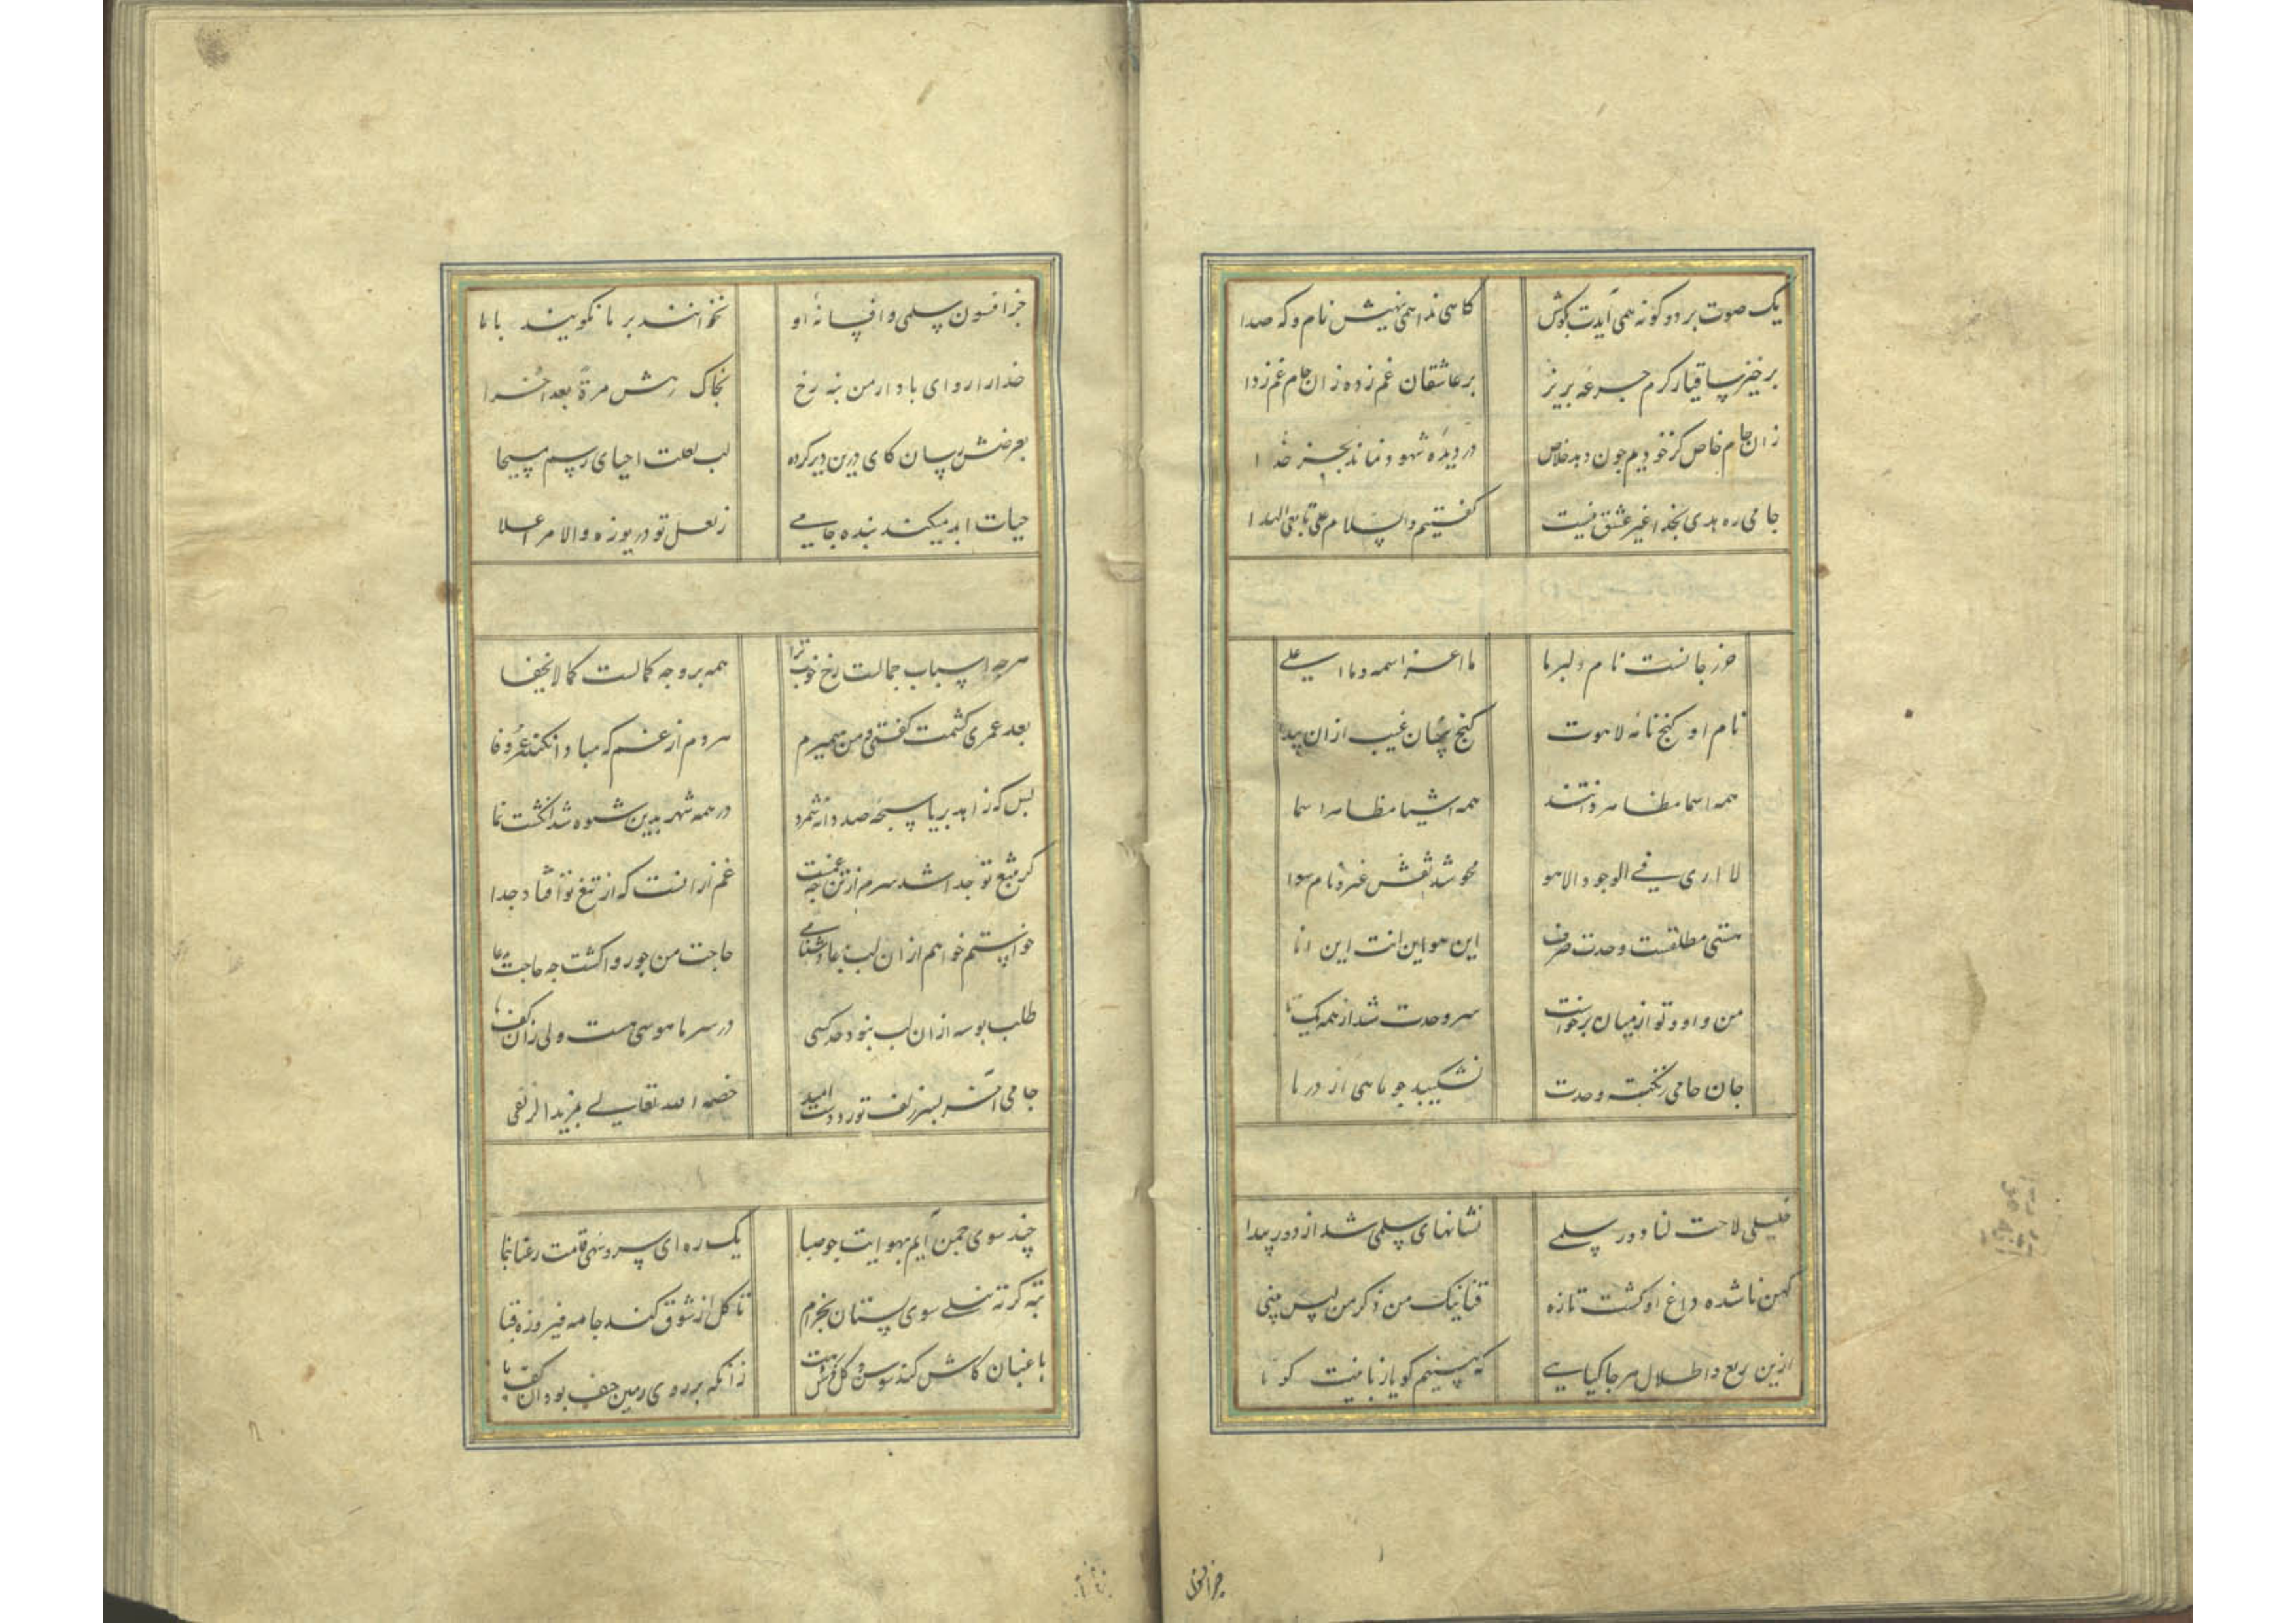 یک صوت بر دو کونه همی آیدت بکوش
کاهی ندا همی نهیش نام و که صدا
برخیز ساقیا ز کرم جرعه بریز
بر عاشقان غم زده زان جام غم زدا
زان جام خاص کز خودیم چون دهد خلاص
در دیده شهود نماند بجز خدا
جامی ره هدی بخدا غیر عشق نیست
کفتیم والسلام علی تابعی الهدا
حرز جانست نام دلبر ما
ما اعز اسمه وما اعلی
نام او کنج نامه لاهوت
کنج پنهان غیب ازان پیدا
همه اسما مظاهر ذاتند
همه اشیا مظاهر اسما
لا اری فی الوجود الا هو
محو شد نقش غیر و نام سوا
هستی مطلقست و وحدت صرف
این هو این انت این انا
من و او و تو از میان برخواست
سر وحدت شد از همه یکتا
جان جامی ز نکته وحدت
نشکیبد جو ماهی از دریا
خلیلی لاحت لنا دور سلمی
نشانهای سلمی شد از دور پیدا
کهن ناشده داغ او کشت تازه
قفا نبک من ذکر من لیس ینسی
ازین ربع و اطلال هر جا کیاهی
که بینیم کویا زبانیست کویا
جز افسون
جز افسون سلمی و افسانه او
نخوانند بر ما نکویند با ما
خدا را رو ای باد از من بنه رخ
بخاک رهش مرة بعد اخرا
بعرضش رسان کای درین دیر کرده
لب لعلت احیای رسم مسیحا
حیات ابد میکند بنده جامی
ز لعل تو دریوزه والامر اعلا
هرجه اسباب جمالست رخ خوب ترا
همه بر وجه کمالست کما لا یخفا
بعد عمری کشمت کفتی و من میمیرم
هردم از غم که مبادا نکند عمر وفا
بس که زاهد بریا سبحه صد دانه شمرد
در همه شهر بدین شیوه شد انکشت نما
کر بتیغ تو جدا شد سرم از تن جه غمست
غم ازانست که از تیغ تو افتاد جدا
خواستم خواهم ازان لب بدعا دشنامی
حاجت من جو روا کشت جه حاجت بدعا
طلب بوسه ازان لب نبود حد کسی
در سر ما هوسی هست ولی زان کف پا
جامی آخر بسر زلف تو زد دست امید
خصه الله تعالی بمزید الزلفی
چند سوی چمن آیم بهوایت جو صبا
یک ره ای سرو سهی قامت رعنا بنما
ته کرته نیلی سوی بستان بخرام
تا کل از شوق کند جامه فیروزه قبا
باغبان کاش کند سوسن و کل فرش رهت
زانکه بر روی زمین حیف بود آن کف پا